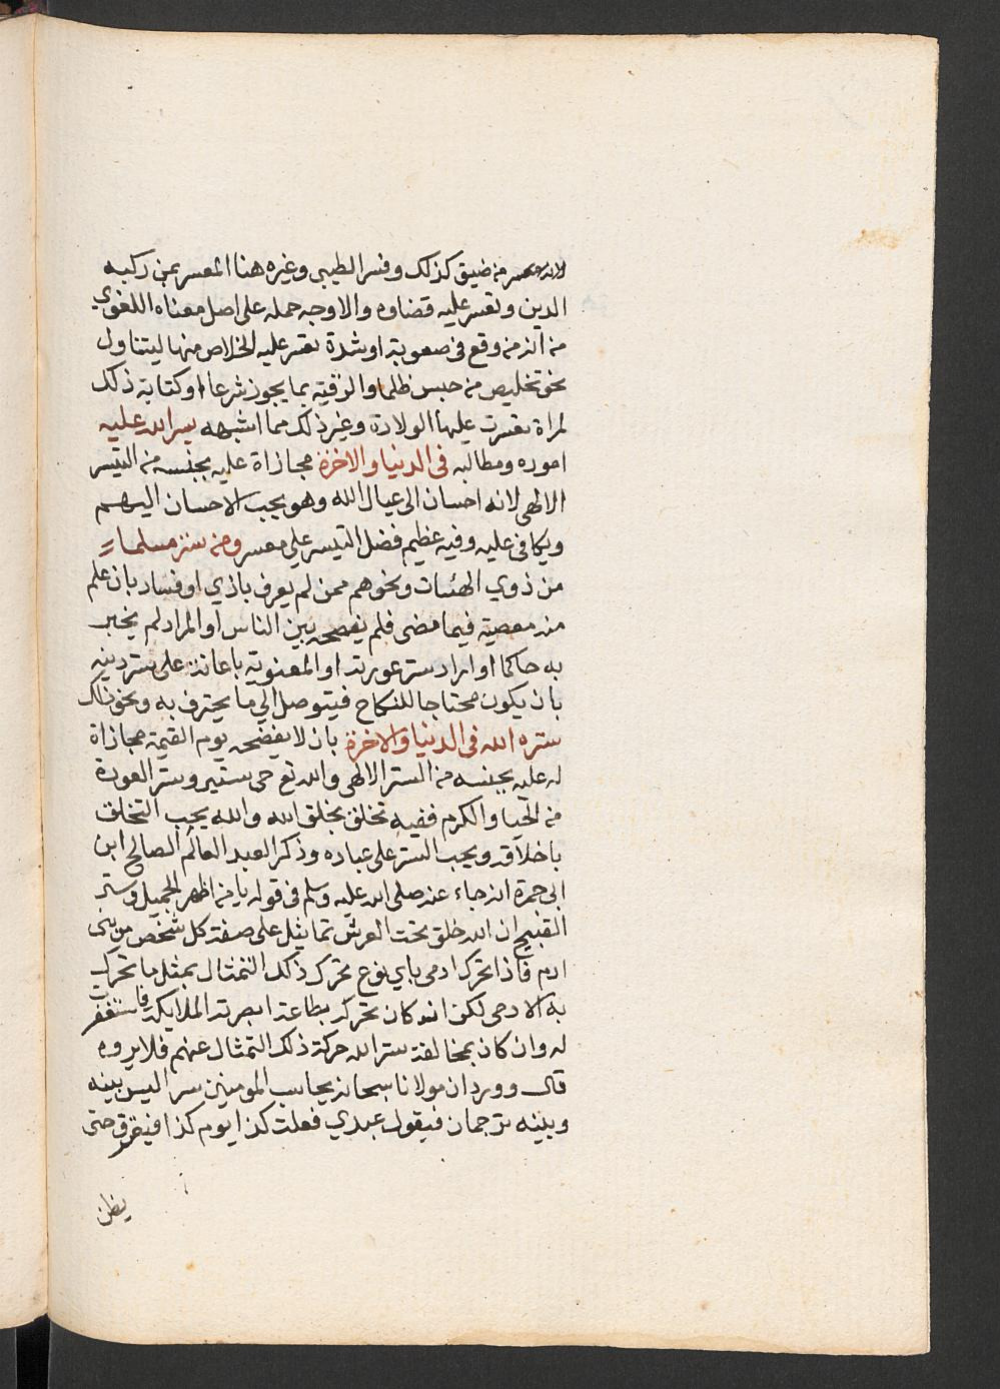 من ضيق كذلك وفسر الطيبي وغيره هنا المعسر بمن ركبه
الدين وتعسر عليه قضاوه والاوجه حمله على اصل معناه اللغوي
من انه من وقع في صعوبة او شدة تعسر عليه الخلاص منها ليتناول
نحو تخليص من حبس ظلما والرقية بما يجوز شرعا او كتابة ذلك
لمراة تعسرت عليها الولادة وغير ذلك مما اشبهه يسر الله عليه
اموره ومطالبه في الدنيا والاخرة مجازاة عليه بجنسه من التيسر
الالهى لانه احسان الى عيال الله وهو يحب الاحسان اليهم
ويكافى عليه وفيه عظيم فضل التيسر على معسر ومن ستر مسلما
من ذوي الهئات ونحوهم ممن لم يعرف باذي او فساد بان علم
منه معصية فيما مضى فلم يفضحه بين الناس او المراد لم يخبر
به حاكما او اراد ستر عورته او المعنوية باعانته على ستر دينه
بان يكون محتاجا للنكاح فيتوصل الي ما يحترف به ونحو ذلك
ستره الله في الدنيا والاخرة بان لا يفضحه يوم القيمة مجازاة
له عليه بجنسه من الستر الالهى والله تع حى ستير وستر العورة
من الحيا والكرم ففيه تخلق بخلق الله والله يحب التخلق
باخلاقه ويحب الستر على عباده وذكر العبد العالم الصالح ابن
ابى جمرة انه جاء عنه صلى الله عليه وسلم في قوله يا من اظهر الجميل وستر
القبيح ان الله خلق تحت العرش تماثيل على صفة كل شخص من بنى
ادم فاذا تحرك ادمى باي نوع تحرك ذلك التمثال بمثل ما تحرك
به الادمى لكن انه كان تحركه بطاعة ابصرته الملايكة فاستغفرت
له وان كان بمخالفة ستر الله حركة ذلك التمثال عنهم فلا يروه
قال وورد ان مولانا سبحانه يحاسب المومنين سرا ليس بينه
وبينه ترجمان فيقول عبدي فعلت كذا يوم كذا فيفرق حتى
يظن